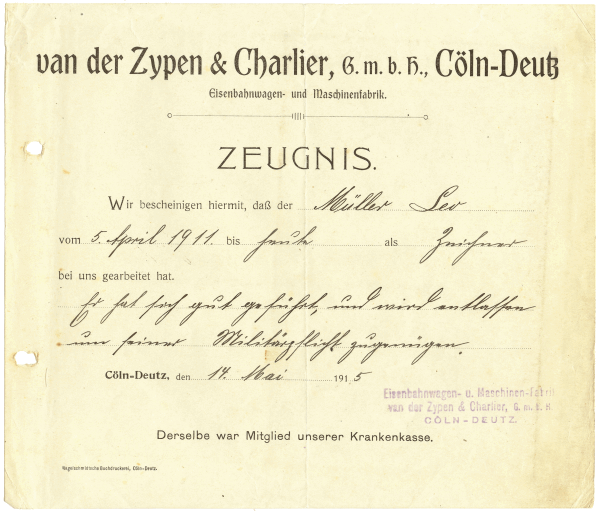 van der Zypen & Charlier, G. m. b. H., Cöln-Deutz
Eisenbahnwagen- und Maschinenfabrik.
ZEUGNIS.
Wir bescheinigen hiermit, daß der Müller Leo
vom 5. April 1911. bis heute als Zeichner
bei uns gearbeitet hat.
Er hat sich gut geführt, und wird entlassen
um seiner Militärpflicht zugenügen.
Cöln-Deutz, den 14. Mai 1915
Eisenbahnwagen- u. Maschinen-Fabrik
van der Zypen & Charlier, G. m. b. H.
CÖLN-DEUTZ.
Derselbe war Mitglied unserer Krankenkasse.
Nagelschmidtsche Buchdruckerei, Cöln-Deutz.